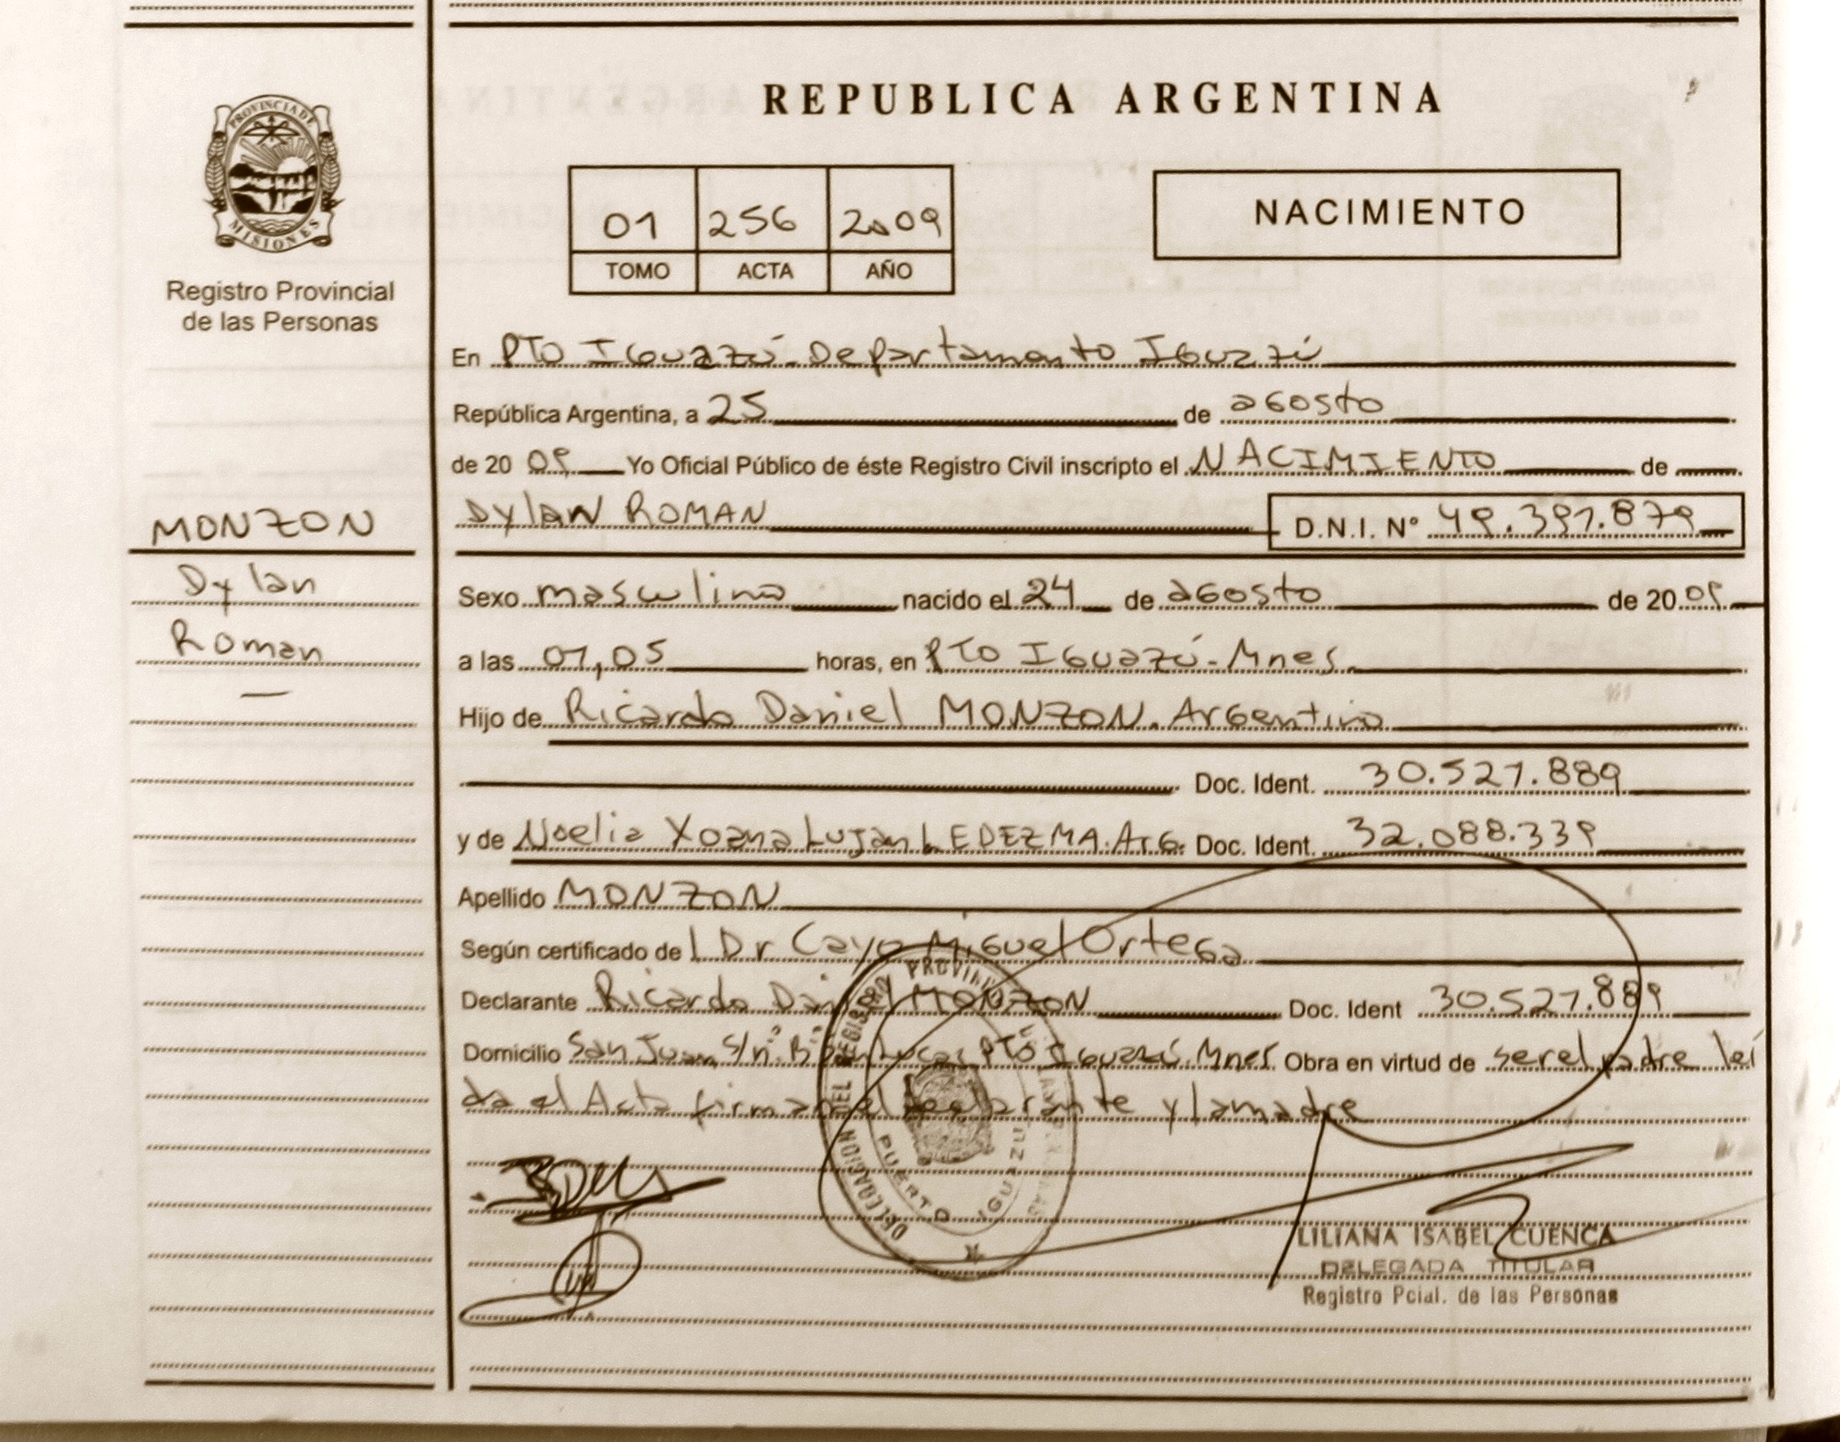 REPUBLICA ARGENTINA
PROVINCIA DE
MISIONES
Registro Provincial
de las Personas
01 256 2009
TOMO ACTA AÑO
NACIMIENTO
En PTO IGuazú. Departamento IGuazú
República Argentina, a 25 de aGosto
de 20 09 Yo Oficial Público de éste Registro Civil inscripto el NACIMIENTO de
MONZON
Dylan
Roman
—
DylaN ROMAN D.N.I. Nº 49.397.879
Sexo masculino nacido el 24 de aGosto de 20 09
a las 01,05 horas, en PTO IGuazú - Mnes.
Hijo de Ricardo Daniel MONZON. ArGentino
Doc. Ident. 30.527.889
y de Noelia Yoana Lujan LEDEZMA. ArG. Doc. Ident. 32.088.339
Apellido MONZON
Según certificado de l Dr Cayo MiGuel OrteGa
Declarante Ricardo Daniel MONZON Doc. Ident 30.527.889
Domicilio San Juan S/nº. Bº Lucas PTO IGuazú. Mnes. Obra en virtud de ser el padre leí
da el Acta firman el declarante y la madre
DELEGACION DEL REGISTRO PROVINCIAL
PUERTO IGUAZU
LILIANA ISABEL CUENCA
DELEGADA TITULAR
Registro Pcial. de las Personas